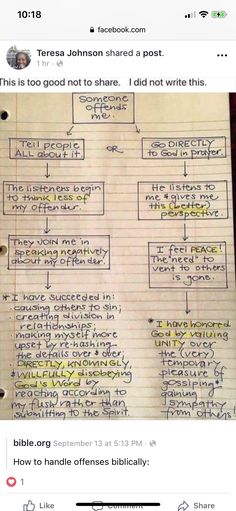 10:18
facebook.com
Teresa Johnson shared a post.
1 hr ·
This is too good not to share. I did not write this.
Someone
offends
me.
Tell people
ALL about it.
OR
GO DIRECTLY
to God in prayer.
The listeners begin
to think less of
my offender.
He listens to
me & gives me
this (better)
perspective.
They JOIN me in
speaking negatively
about my offender.
I feel PEACE!
The "need" to
vent to others
is gone.
* I have succeeded in:
causing others to sin;
creating division in
relationships;
making myself more
upset by re-hashing
the details over & over;
DIRECTLY, KNOWINGLY,
& WILLFULLY disobeying
God's Word by
reacting according to
my flesh rather than
submitting to the Spirit.
* I have honored
God by valuing
UNITY over
the (very)
temporary
pleasure of
gossiping &
gaining
sympathy
from others!
bible.org September 13 at 5:13 PM ·
How to handle offenses biblically:
1
Like
Comment
Share